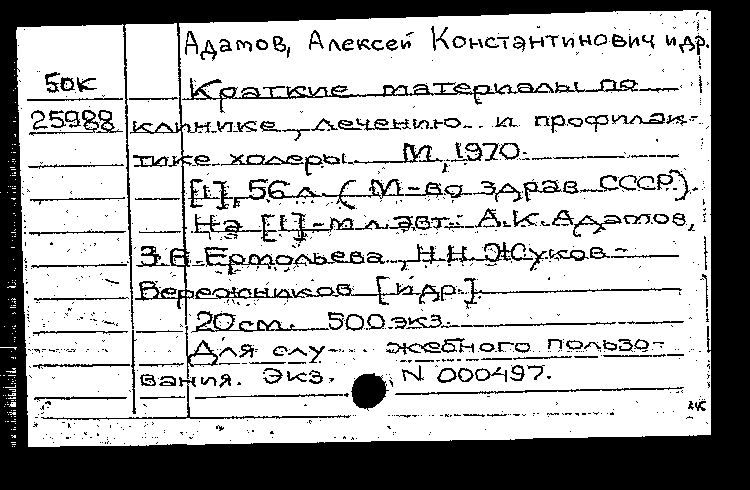 Адамов, Алексей Константинович и др.
50к
Краткие материалы по
25988 клинике, лечению и профилак-
тике холеры. М, 1970.
[1], 56 л. (М-во здрав СССР).
На [1]-м л. авт.: А.К. Адамов,
З.В. Ермольева, Н.Н. Жуков-
Вережников [и др.].
20 см. 500 экз.
Для слу- жебного пользо-
вания. Экз. N 000497.